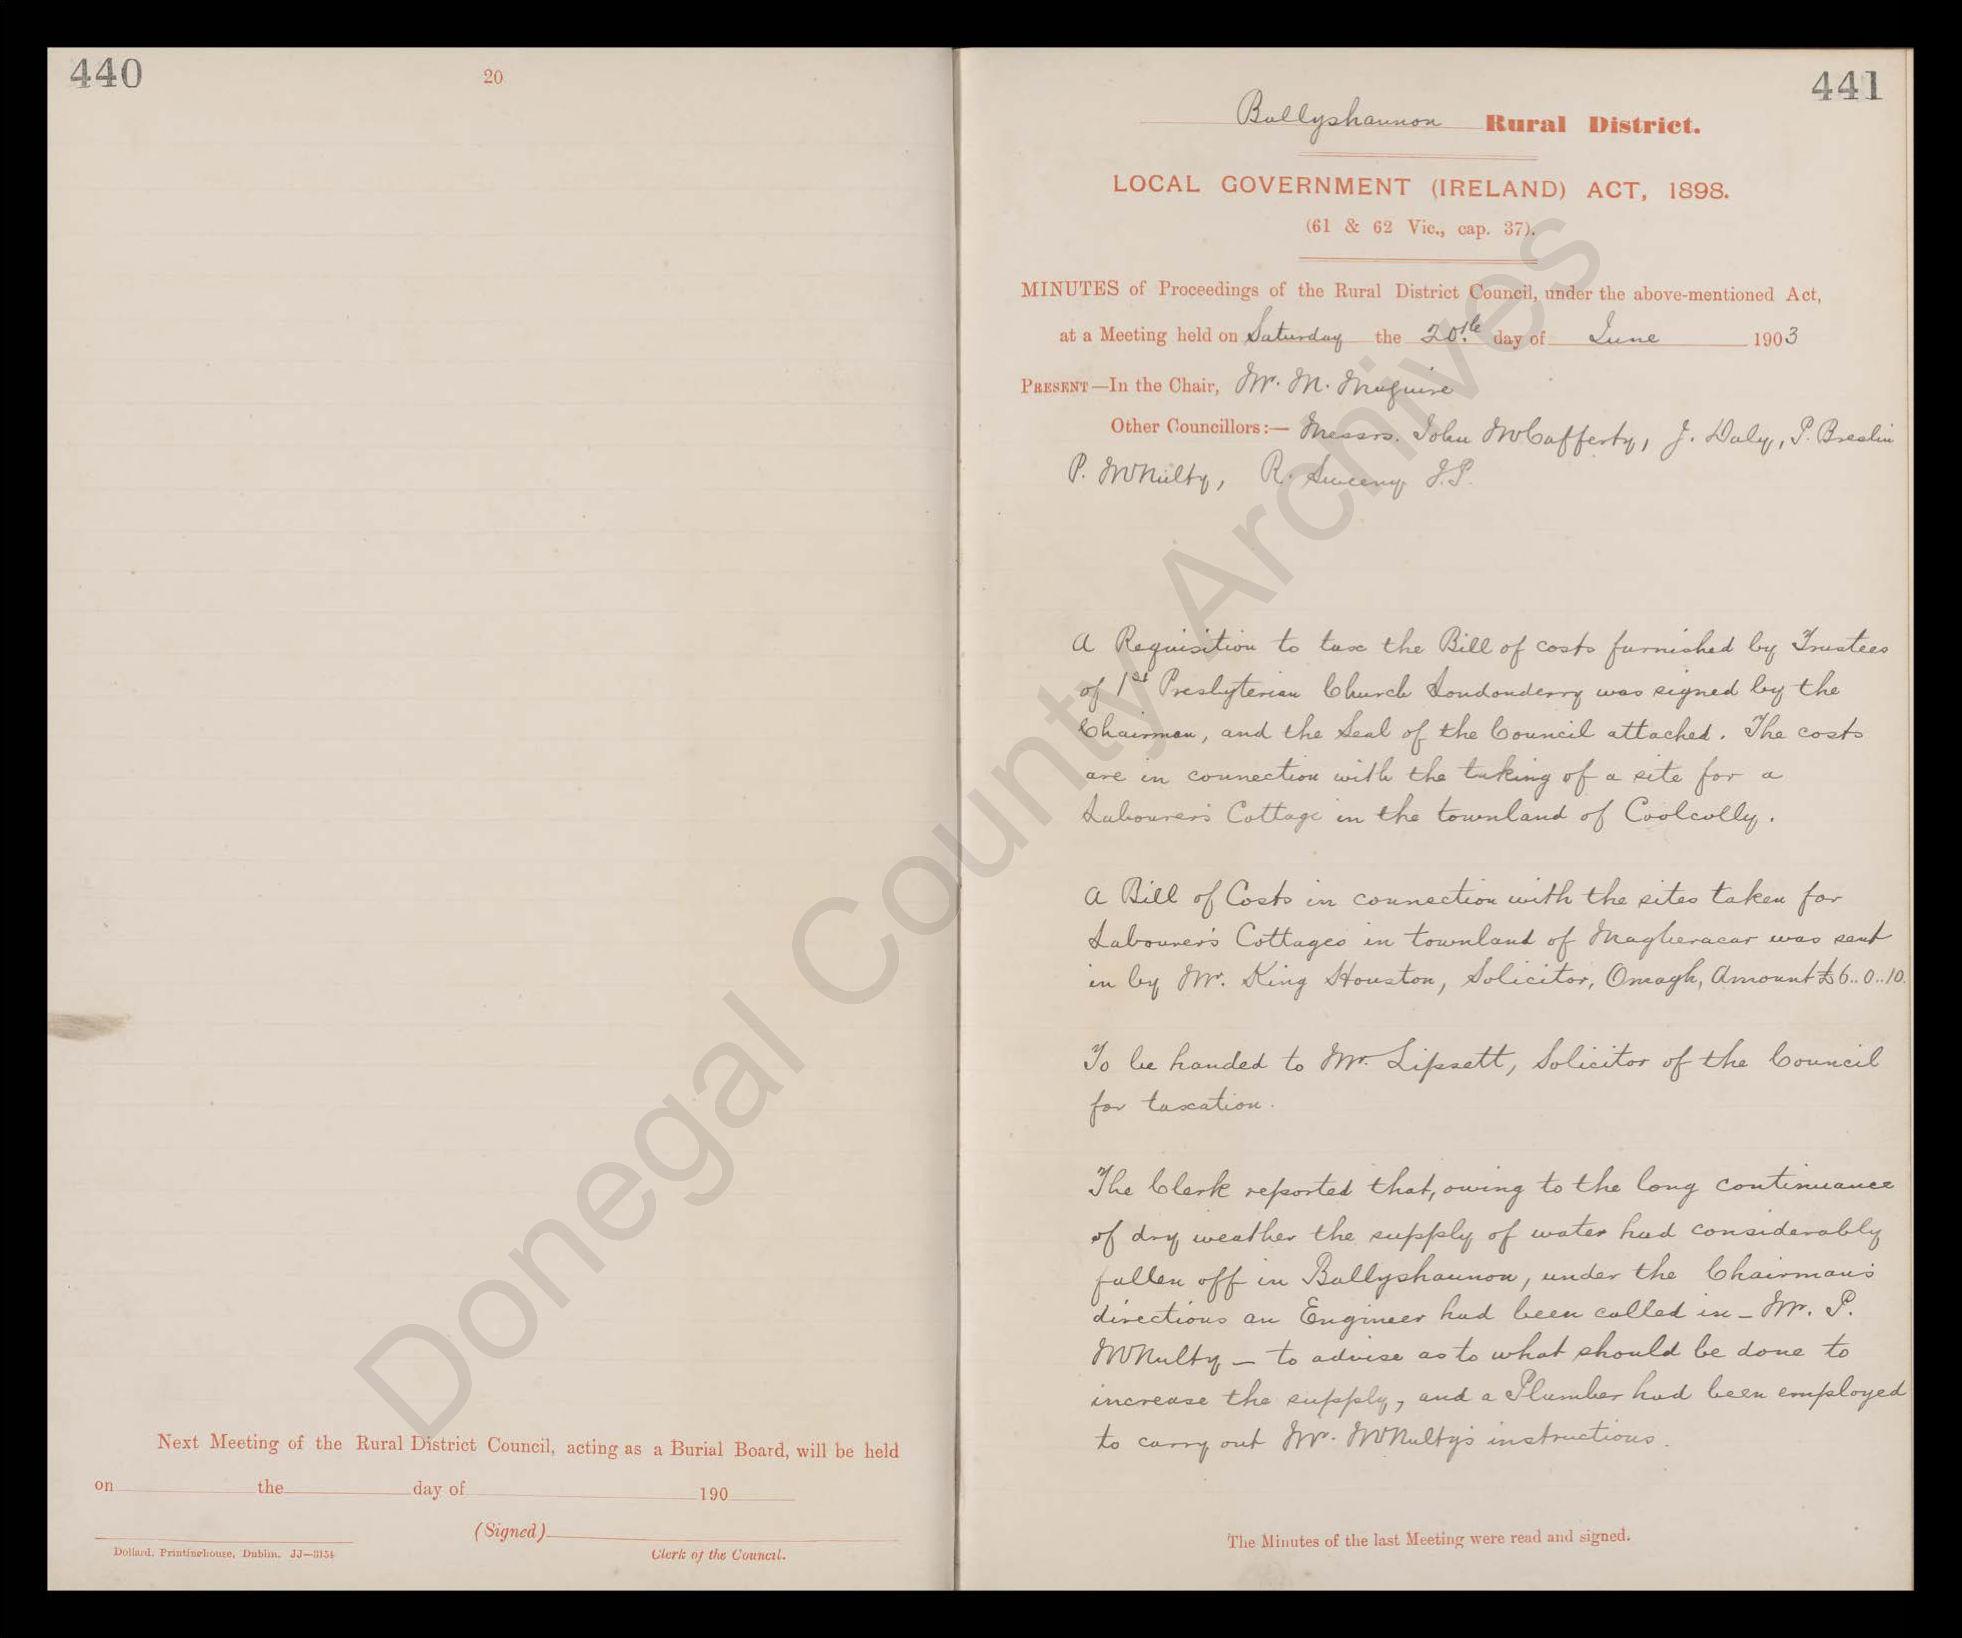 440
20
Next Meeting of the Rural District Council, acting as a Burial Board, will be held
on the day of 190
(Signed)
Clerk of the Council.
Dollard, Printinghouse, Dublin. JJ—3154
441
Ballyshannon Rural District.
LOCAL GOVERNMENT (IRELAND) ACT, 1898.
(61 & 62 Vic., cap. 37).
MINUTES of Proceedings of the Rural District Council, under the above-mentioned Act,
at a Meeting held on Saturday the 20th day of June 1903
PRESENT—In the Chair, Mr. M. Maguire
Other Councillors:— Messrs. John McCafferty, J. Daly, P. Breslin
P. McNulty, R. Sweeny J.P.
A Requisition to tax the Bill of costs furnished by Trustees
of 1st Presbyterian Church Londonderry was signed by the
Chairman, and the Seal of the Council attached. The costs
are in connection with the taking of a site for a
Labourer's Cottage in the townland of Coolcolly.
A Bill of Costs in connection with the sites taken for
Labourer's Cottages in townland of Magheracar was sent
in by Mr. King Houston, Solicitor, Omagh, Amount £6..0..10.
To be handed to Mr. Lipsett, Solicitor of the Council
for taxation.
The Clerk reported that, owing to the long continuance
of dry weather the supply of water had considerably
fallen off in Ballyshannon, under the Chairman's
directions an Engineer had been called in – Mr. P.
McNulty – to advise as to what should be done to
increase the supply, and a Plumber had been employed
to carry out Mr. McNulty's instructions.
The Minutes of the last Meeting were read and signed.
Donegal County Archives